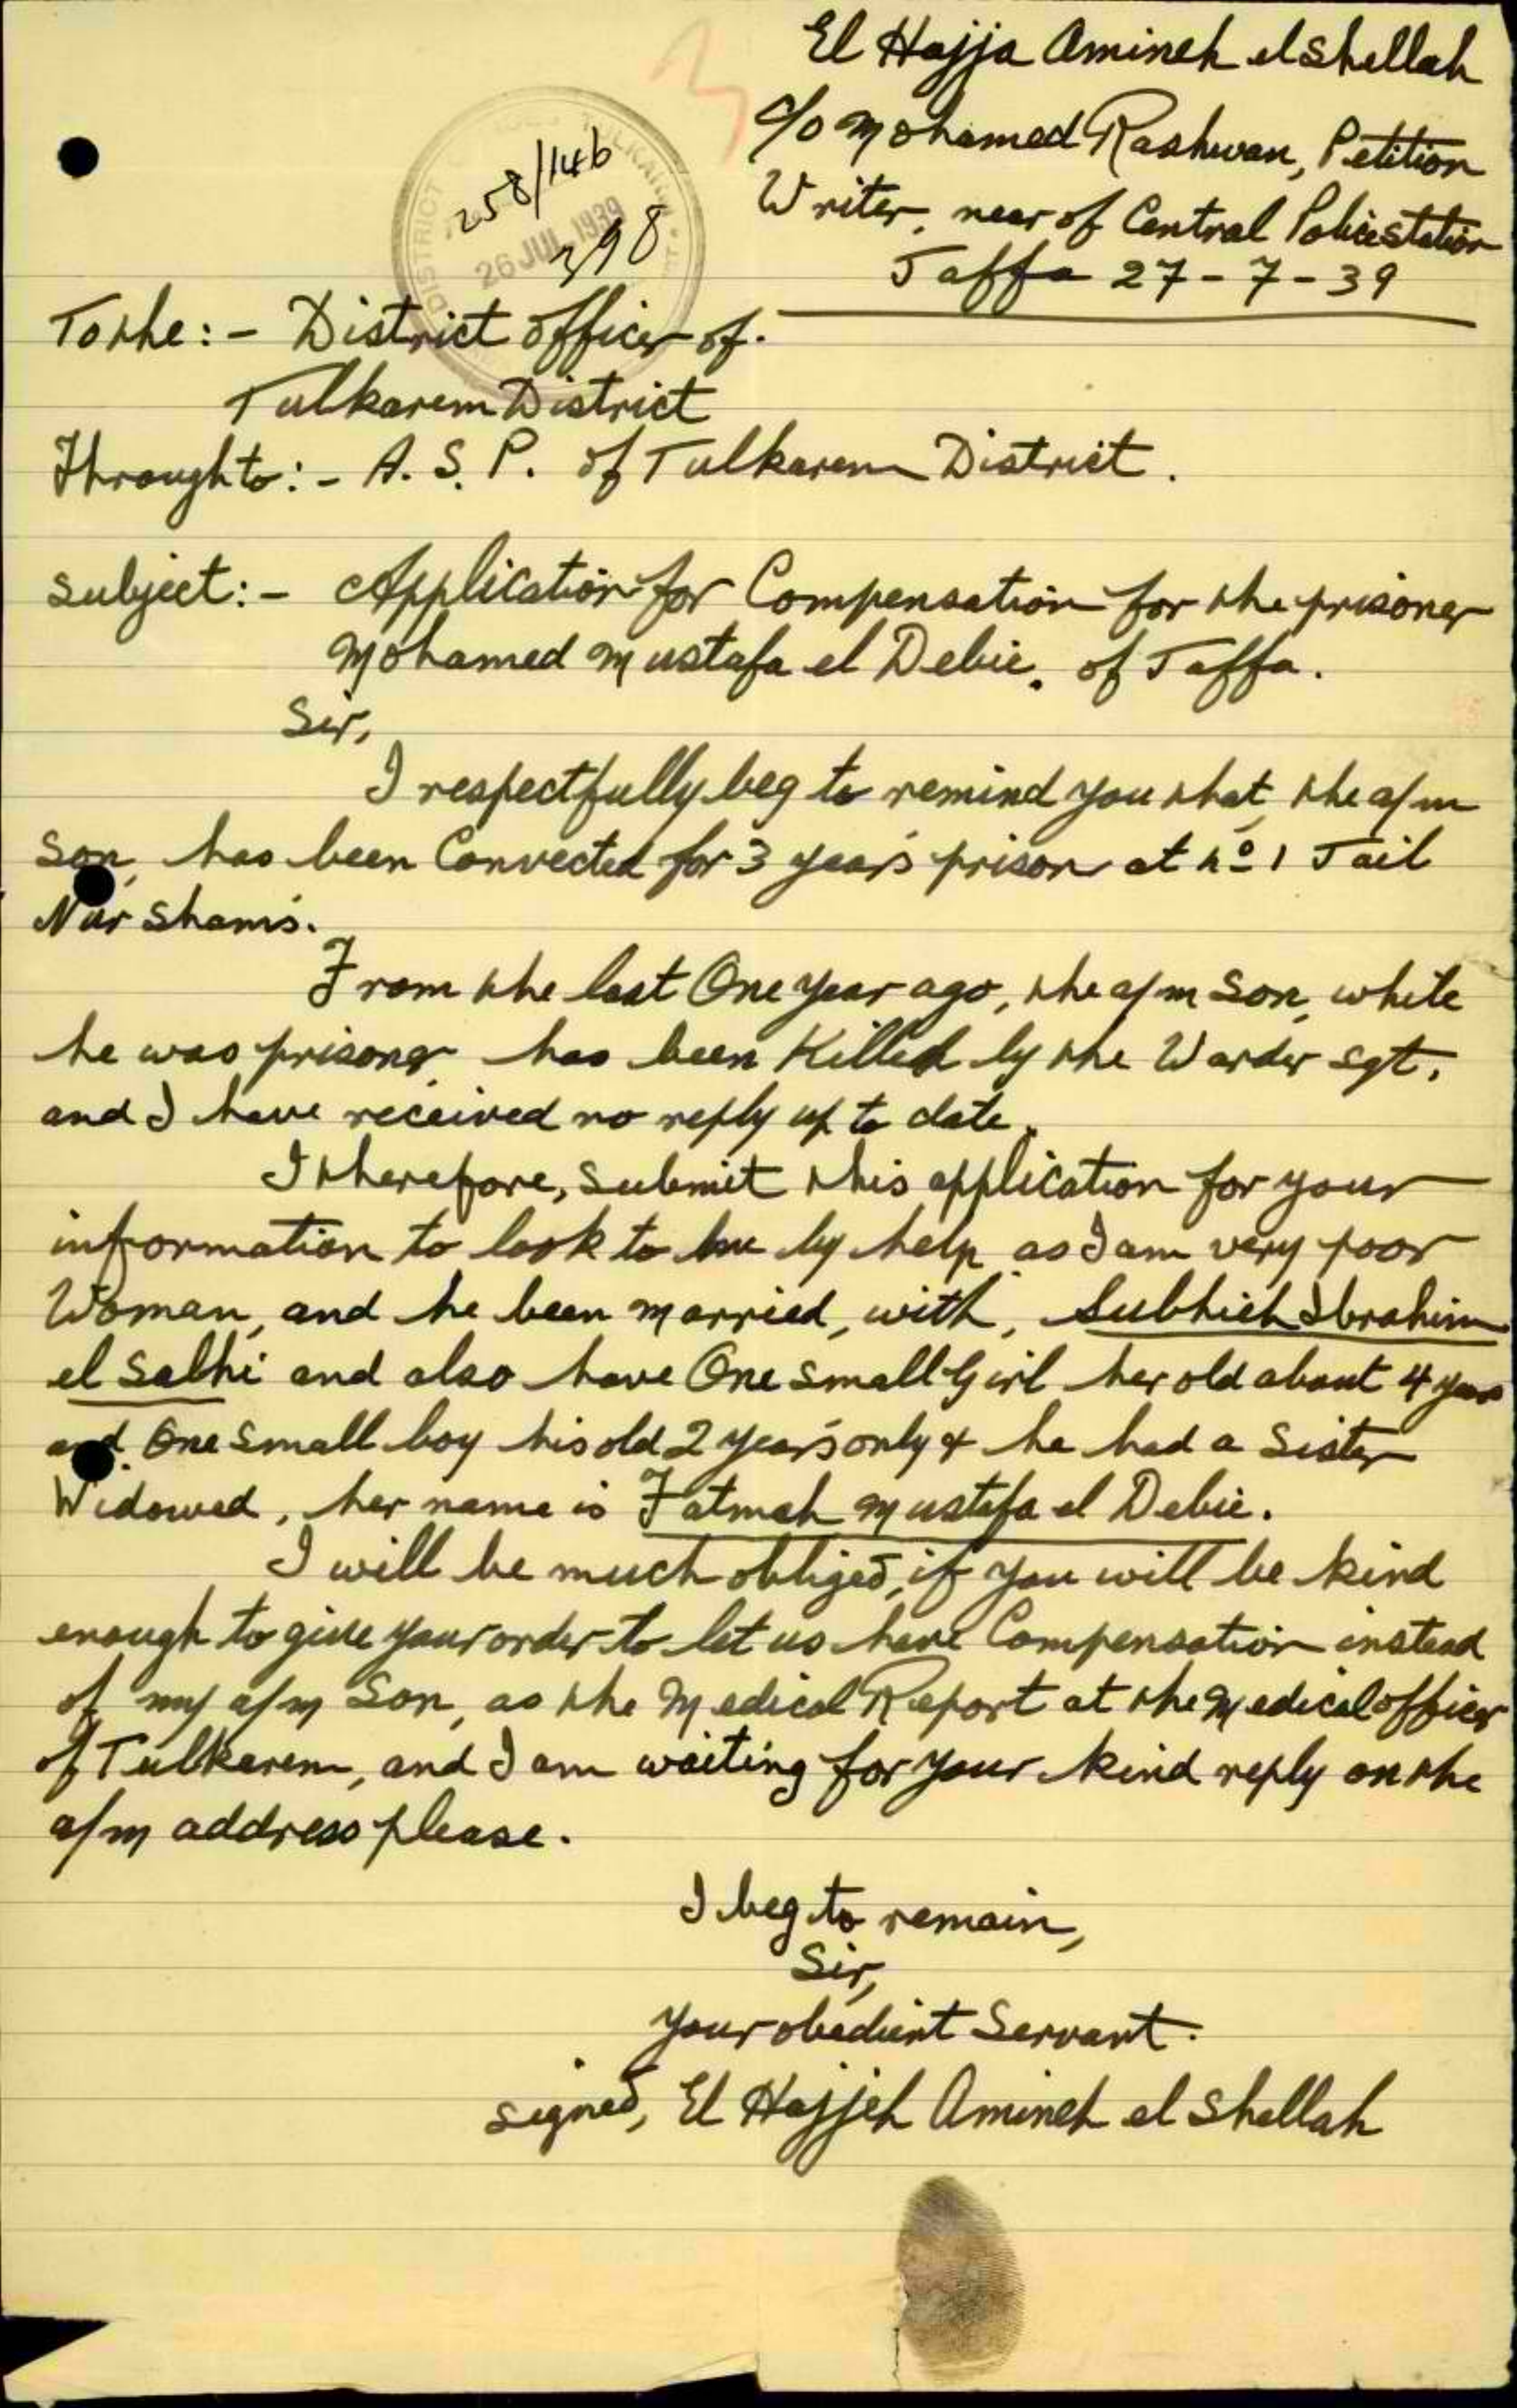 El Hajja Amineh el Shellah
c/o Mohamed Rashwan, Petition
Writer, near of Central Police station
Jaffa 27-7-39
258/146
398
DISTRICT
TULKARM
26 JUL 1939
To the:- District officer of.
Tulkarem District
Through to:- A. S. P. of Tulkarem District.
Subject:- Application for Compensation for the prisoner
Mohamed Mustafa el Debie. of Jaffa.
Sir,
I respectfully beg to remind you that, the a/m
son, has been Convected for 3 year's prison at No 1 Jail
Nur Shams.
From the last One year ago, the a/m Son, while
he was prisoner has been Killed by the Warder sgt,
and I have received no reply up to date.
I therefore, submit this application for your
information to look to me by help as I am very poor
Woman, and he been married, with, Subhieh Ibrahim
el Salhi and also have One small Girl her old about 4 years
and One small boy his old 2 year's only & he had a Sister
Widowed, her name is Fatmah Mustafa el Debie.
I will be much obliged, if you will be kind
enough to give your order to let us have Compensation instead
of my a/m Son, as the Medical Report at the Medical officer
of Tulkarem, and I am waiting for your kind reply on the
a/m address please.
I beg to remain,
Sir,
your obedient Servant.
signed, El Hajjeh Amineh el Shellah